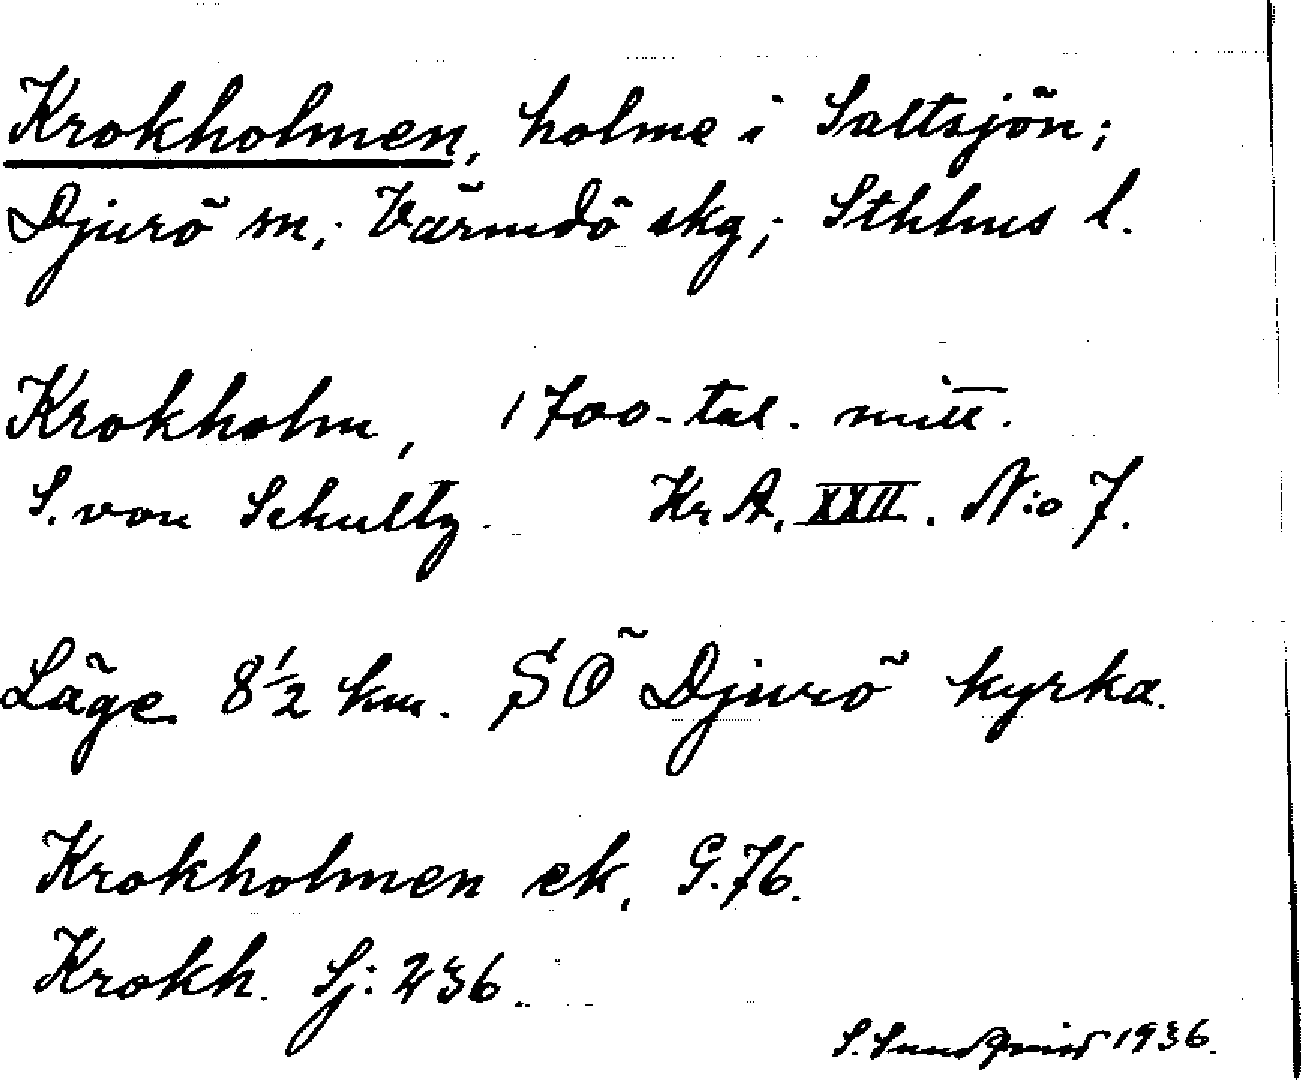 Krokholmen, holme i Saltsjön;
Djurö sn; Värmdö skg; Sthlms l.
Krokholm, 1700-tal. mitt.
S. von Schultz. Kr. A. XXII. N:o 7.
Läge 8 1/2 km. SO Djurö kyrka.
Krokholmen ek. G.76.
Krokh. Sj: 236.
S. 1936.